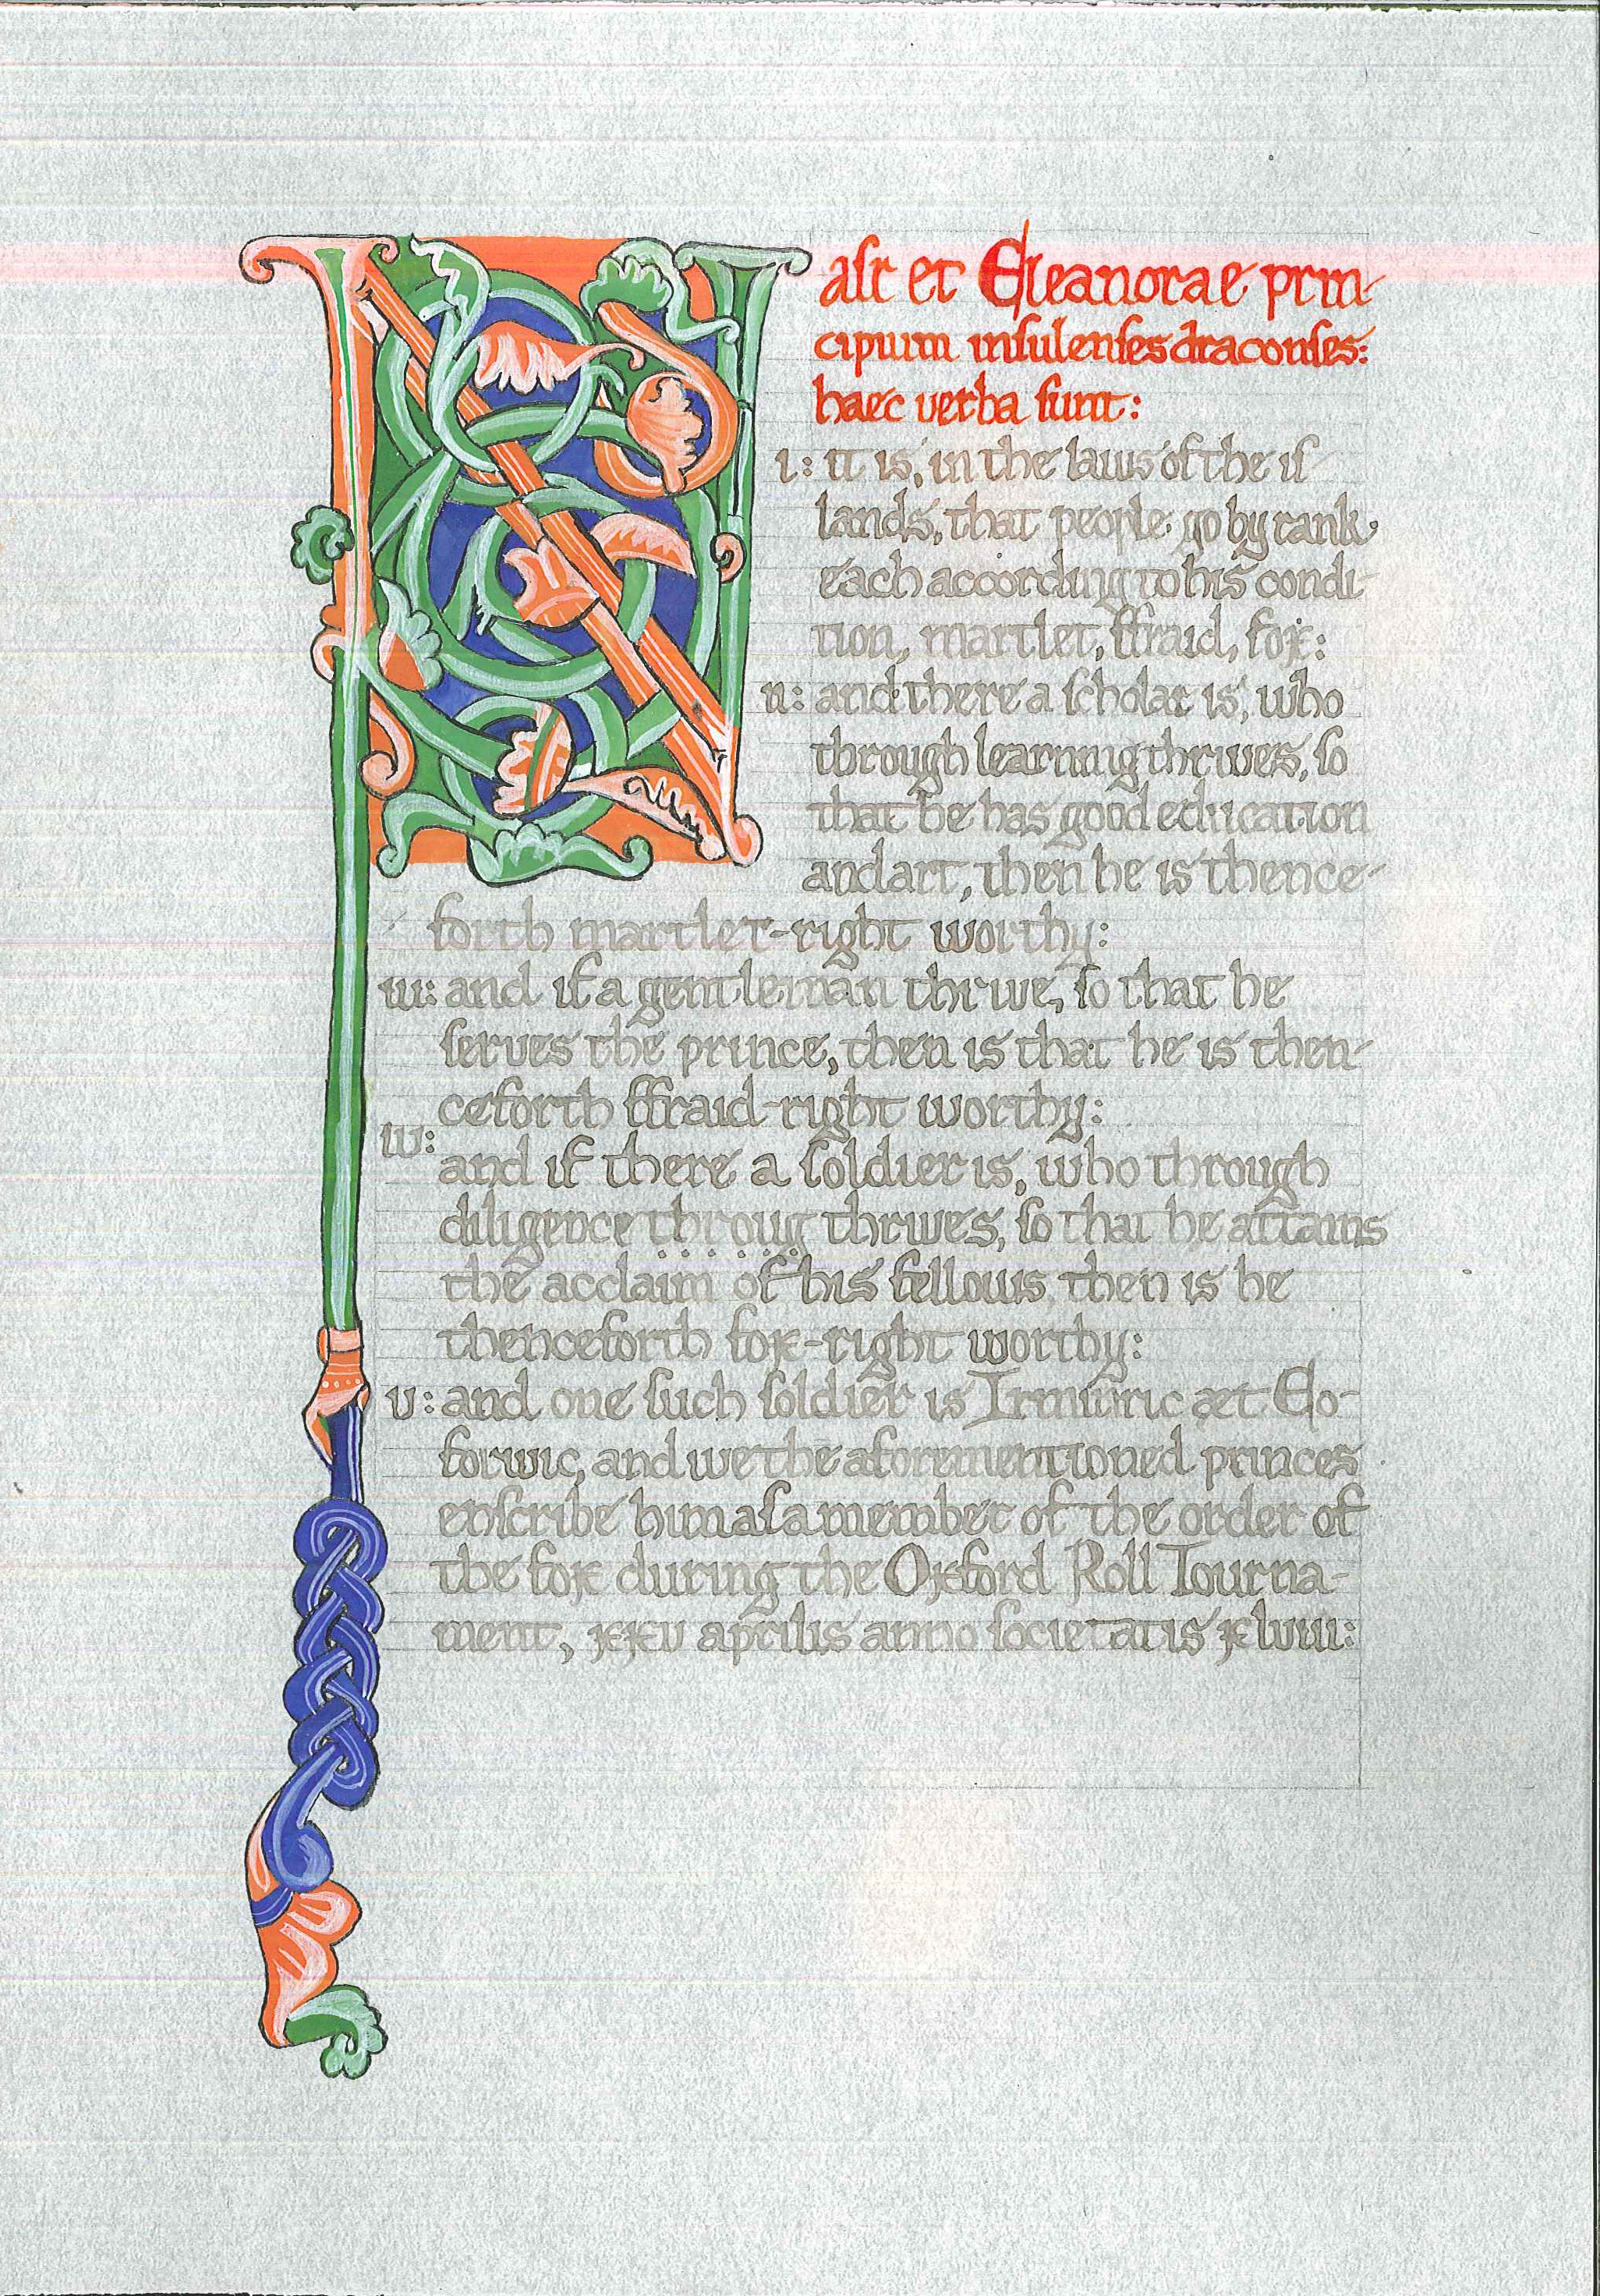 N aſr et Eleanorae prin-
cipum inſulenſes draconſes:
haec verba ſunt:
i: it is, in the laws of the iſ
lands, that people go by rank,
each according to his condi-
tion, martlet, ffraid, fox:
ii: and there a ſcholar is, who
through learning thrives, ſo
that he has good education
and art, then he is thence-
forth martlet-right worthy:
iii: and if a gentleman thrive, ſo that he
ſerves the prince, then is that he is then-
ceforth ffraid-right worthy:
iv: and if there a ſoldier is, who through
diligence throug thrives, ſo that he attains
the acclaim of his fellows, then is he
thenceforth fox-right worthy:
v: and one ſuch ſoldier is Irminric æt Eo-
forwic, and we the aforementioned princes
enſcribe him aſ a member of the order of
the fox during the Oxford Roll Tourna-
ment, xxv aprilis anno ſocietatis xlviii: